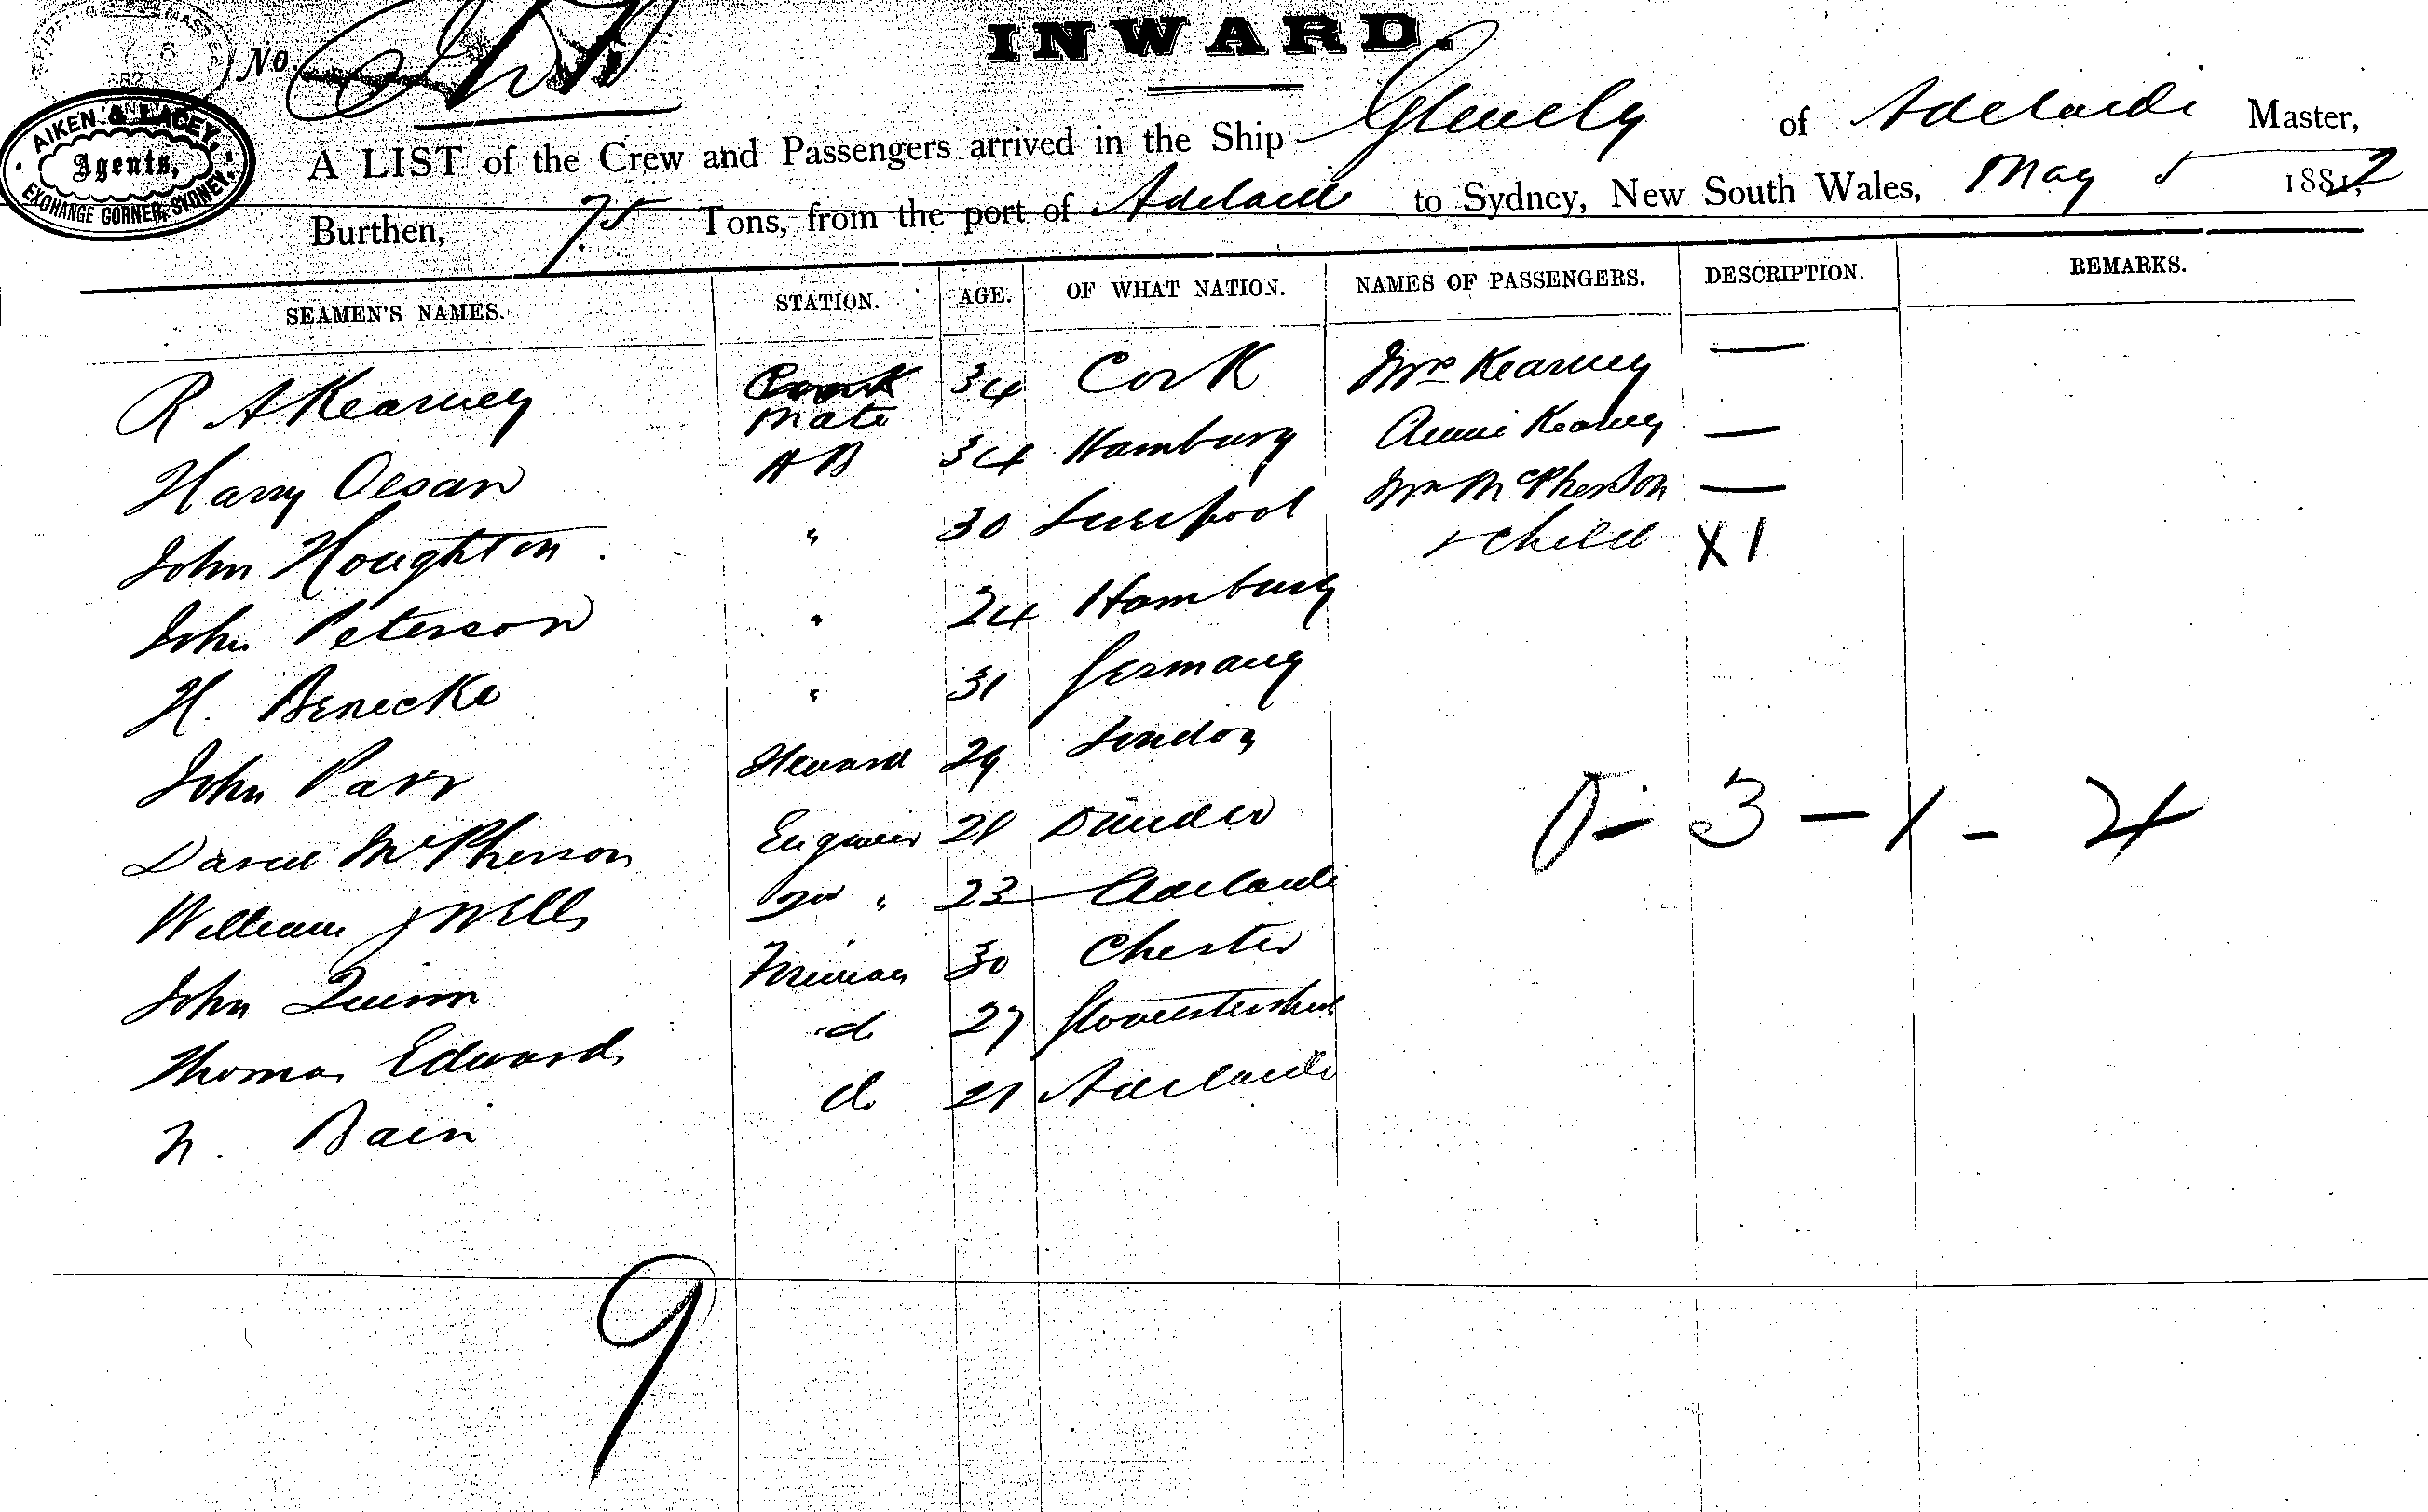 INWARD.
No.
AIKEN & LACEY,
Agents,
EXCHANGE CORNER, SYDNEY.
A LIST of the Crew and Passengers arrived in the Ship Glenelg of Adelaide Master,
Burthen, 75 Tons, from the port of Adelaide to Sydney, New South Wales, May 5 1882
SEAMEN'S NAMES. STATION. AGE. OF WHAT NATION. NAMES OF PASSENGERS. DESCRIPTION. REMARKS.
R A Kearney Mate 34 Cork Mrs Kearney —
Harry Oesan AB 34 Hamburg Annie Kearney —
John Houghton " 30 Liverpool Mrs McPherson —
John Peterson " 24 Hamburg + child X 1
H. Benecke " 31 Germany
John Parr Steward 29 London
David McPherson Engineer 28 Dundee
William J Wells 2nd " 23 Adelaide
John Quinn Fireman 30 Chester
Thomas Edwards do 27 Gloucestershire
N. Bain do 21 Adelaide
0 - 3 - 1 - 4
9